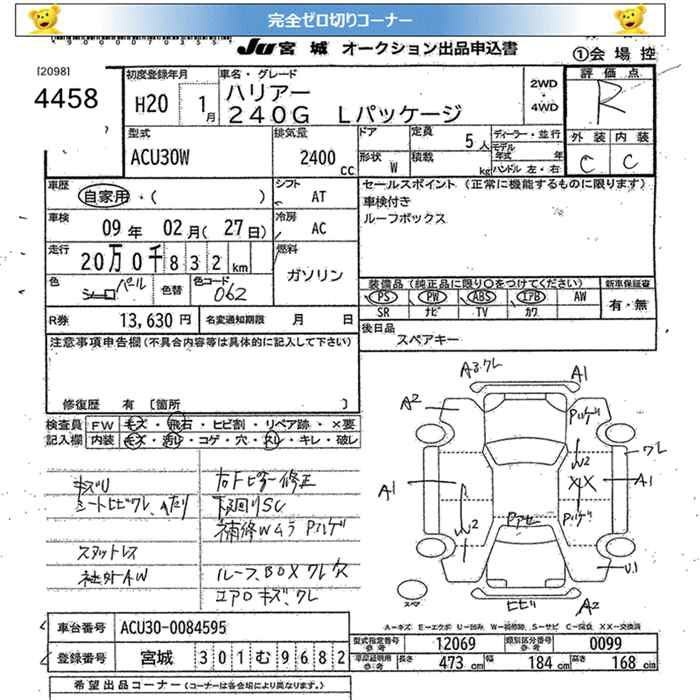 完全ゼロ切りコーナー
JU 宮城 オークション出品申込書
①会場控
[2098]
4458
初度登録年月
H20 1月
車名・グレード
ハリアー
240G Lパッケージ
2WD
・
4WD
評価点
R
外装 内装
C C
型式
ACU30W
排気量
2400 CC
ドア
形状 W
定員 5人
積載 kg
ディーラー・並行
モデル年式 年
ハンドル 左・右
車歴
自家用・( )
シフト AT
車検
09年 02月(27日)
冷房 AC
走行
20万0千832km
燃料
ガソリン
色
シーロ パール
色替
色コード
062
セールスポイント (正常に機能するものに限ります)
車検付き
ルーフボックス
装備品 (純正品に限り○をつけてください)
新車保証書
PS PW ABS エアB AW
SR ナビ TV カワ
有・無
R券 13,630円
名変通知期限 月 日
後日品
スペアキー
注意事項申告欄(不具合内容等は具体的に記入して下さい)
修復歴 有 〔箇所 〕
検査員記入欄
FW キズ・飛石・ヒビ割・リペア跡・×要
内装 キズ・汚レ・コゲ・穴・スレ・キレ・破レ
キズU
シートヒビワレ、ヘタリ
スタットレス
社外AW
右Fピラー修正
下廻りSC
補修Wムラ Pハゲ
ルーフ、BOXワレ欠
エアロキズ、ワレ
A3.ワレ
A1
A2
Pハゲ
W2
ワレ
A1
XX
A1
Pハゲ
W2
Pアセ
U1
スペア
ヒビ
A2
A-キズ E-エクボ U-凹み W-補修跡、S-サビ C-腐食 XX-交換済
車台番号 ACU30-0084595
登録番号 宮城 301 む 9682
型式指定番号 参考 12069
類別区分番号 参考 0099
車両証明用 参考
長さ 473cm 幅 184cm 高さ 168cm
希望出品コーナー (コーナーは各会場により異なります。)